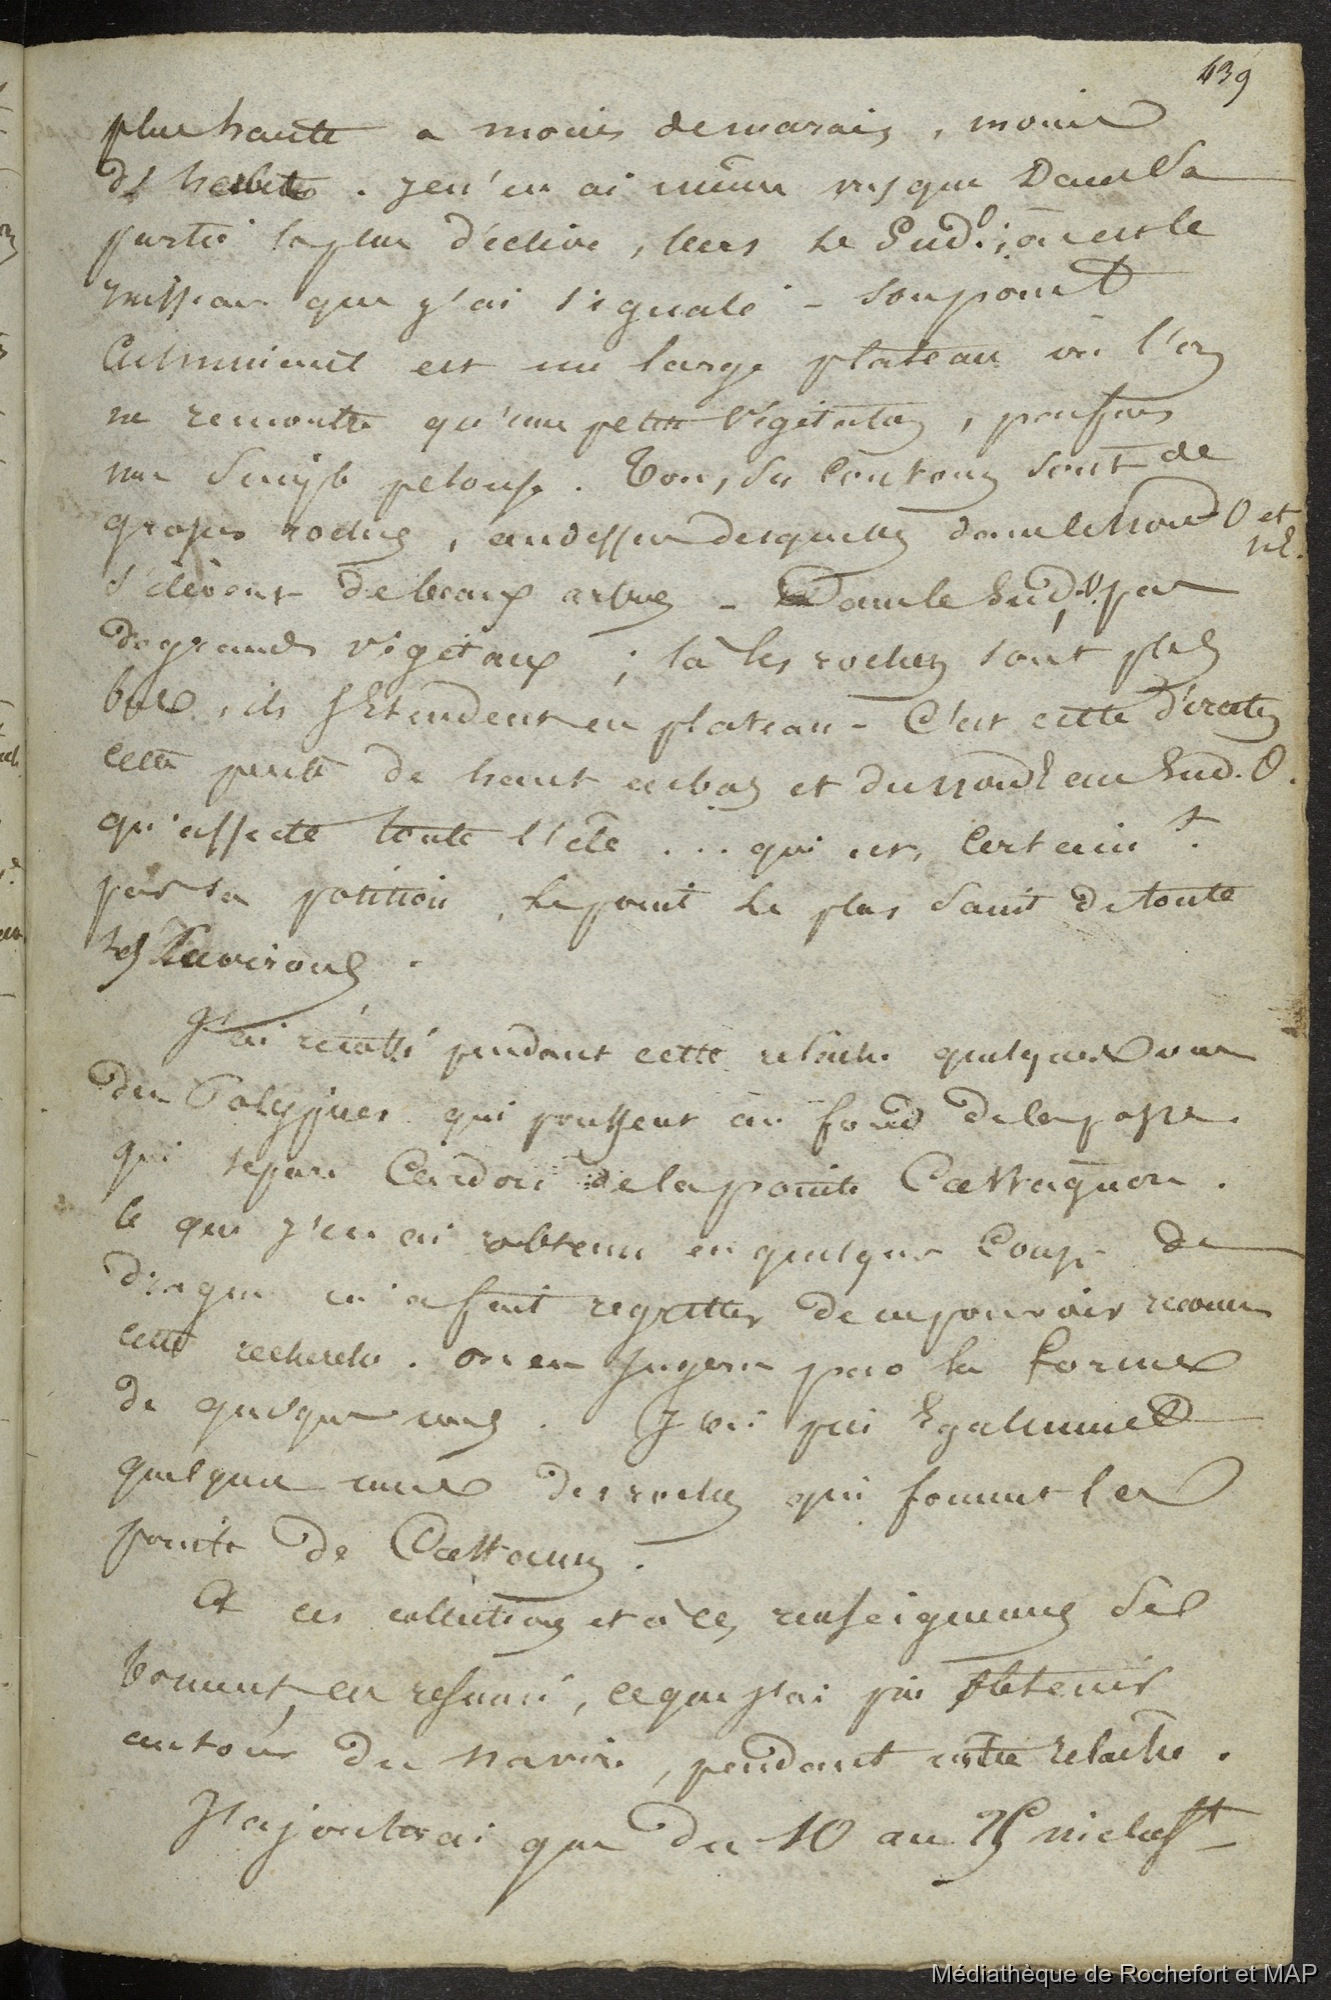 439
plus haute a moins de marais, moins
d'herbes. Je n'en ai même vus que Dans la
partie la plus déclive, vers le Sud. O; où est le
ruisseau que j'ai signalé - Son point
Culminant est un large plateau où l'on
ne rencontre qu'une petite végétation, parfois
une simple pelouse. Tous ses contours sont de
grosses roches, au dessus desquelles dans le nord O et
NE.
s'élèvent de beaux arbres - Dans le Sud, O. pas
de grands végétaux; là les roches sont plus
bas, ils s'étendent en plateau - C'est cette direction
cette pente de haut en bas et du nord E au Sud. O.
qu'affecte toute l'île ... qui est, Certaint.
par sa position, le point le plus sain de toute
les Environs.
J'ai récolté pendant cette relâche quelques uns
des Polypiers qui poussent au fond de la passe
qui sépare de la pointe
ce que j'en ai obtenu en quelques coups de
drague m'a fait regretter de ne pouvoir
cette recherche. on en jugera par la forme
de quelques uns. J'ai pris Egalement
quelques unes des roches qui forment la
pointe de
A ces collections et à ces renseignemens se
bornent, en résumé, ce que j'ai pu obtenir
autour du navire, pendant notre relâche.
J'ajouterai que du 10 au 25